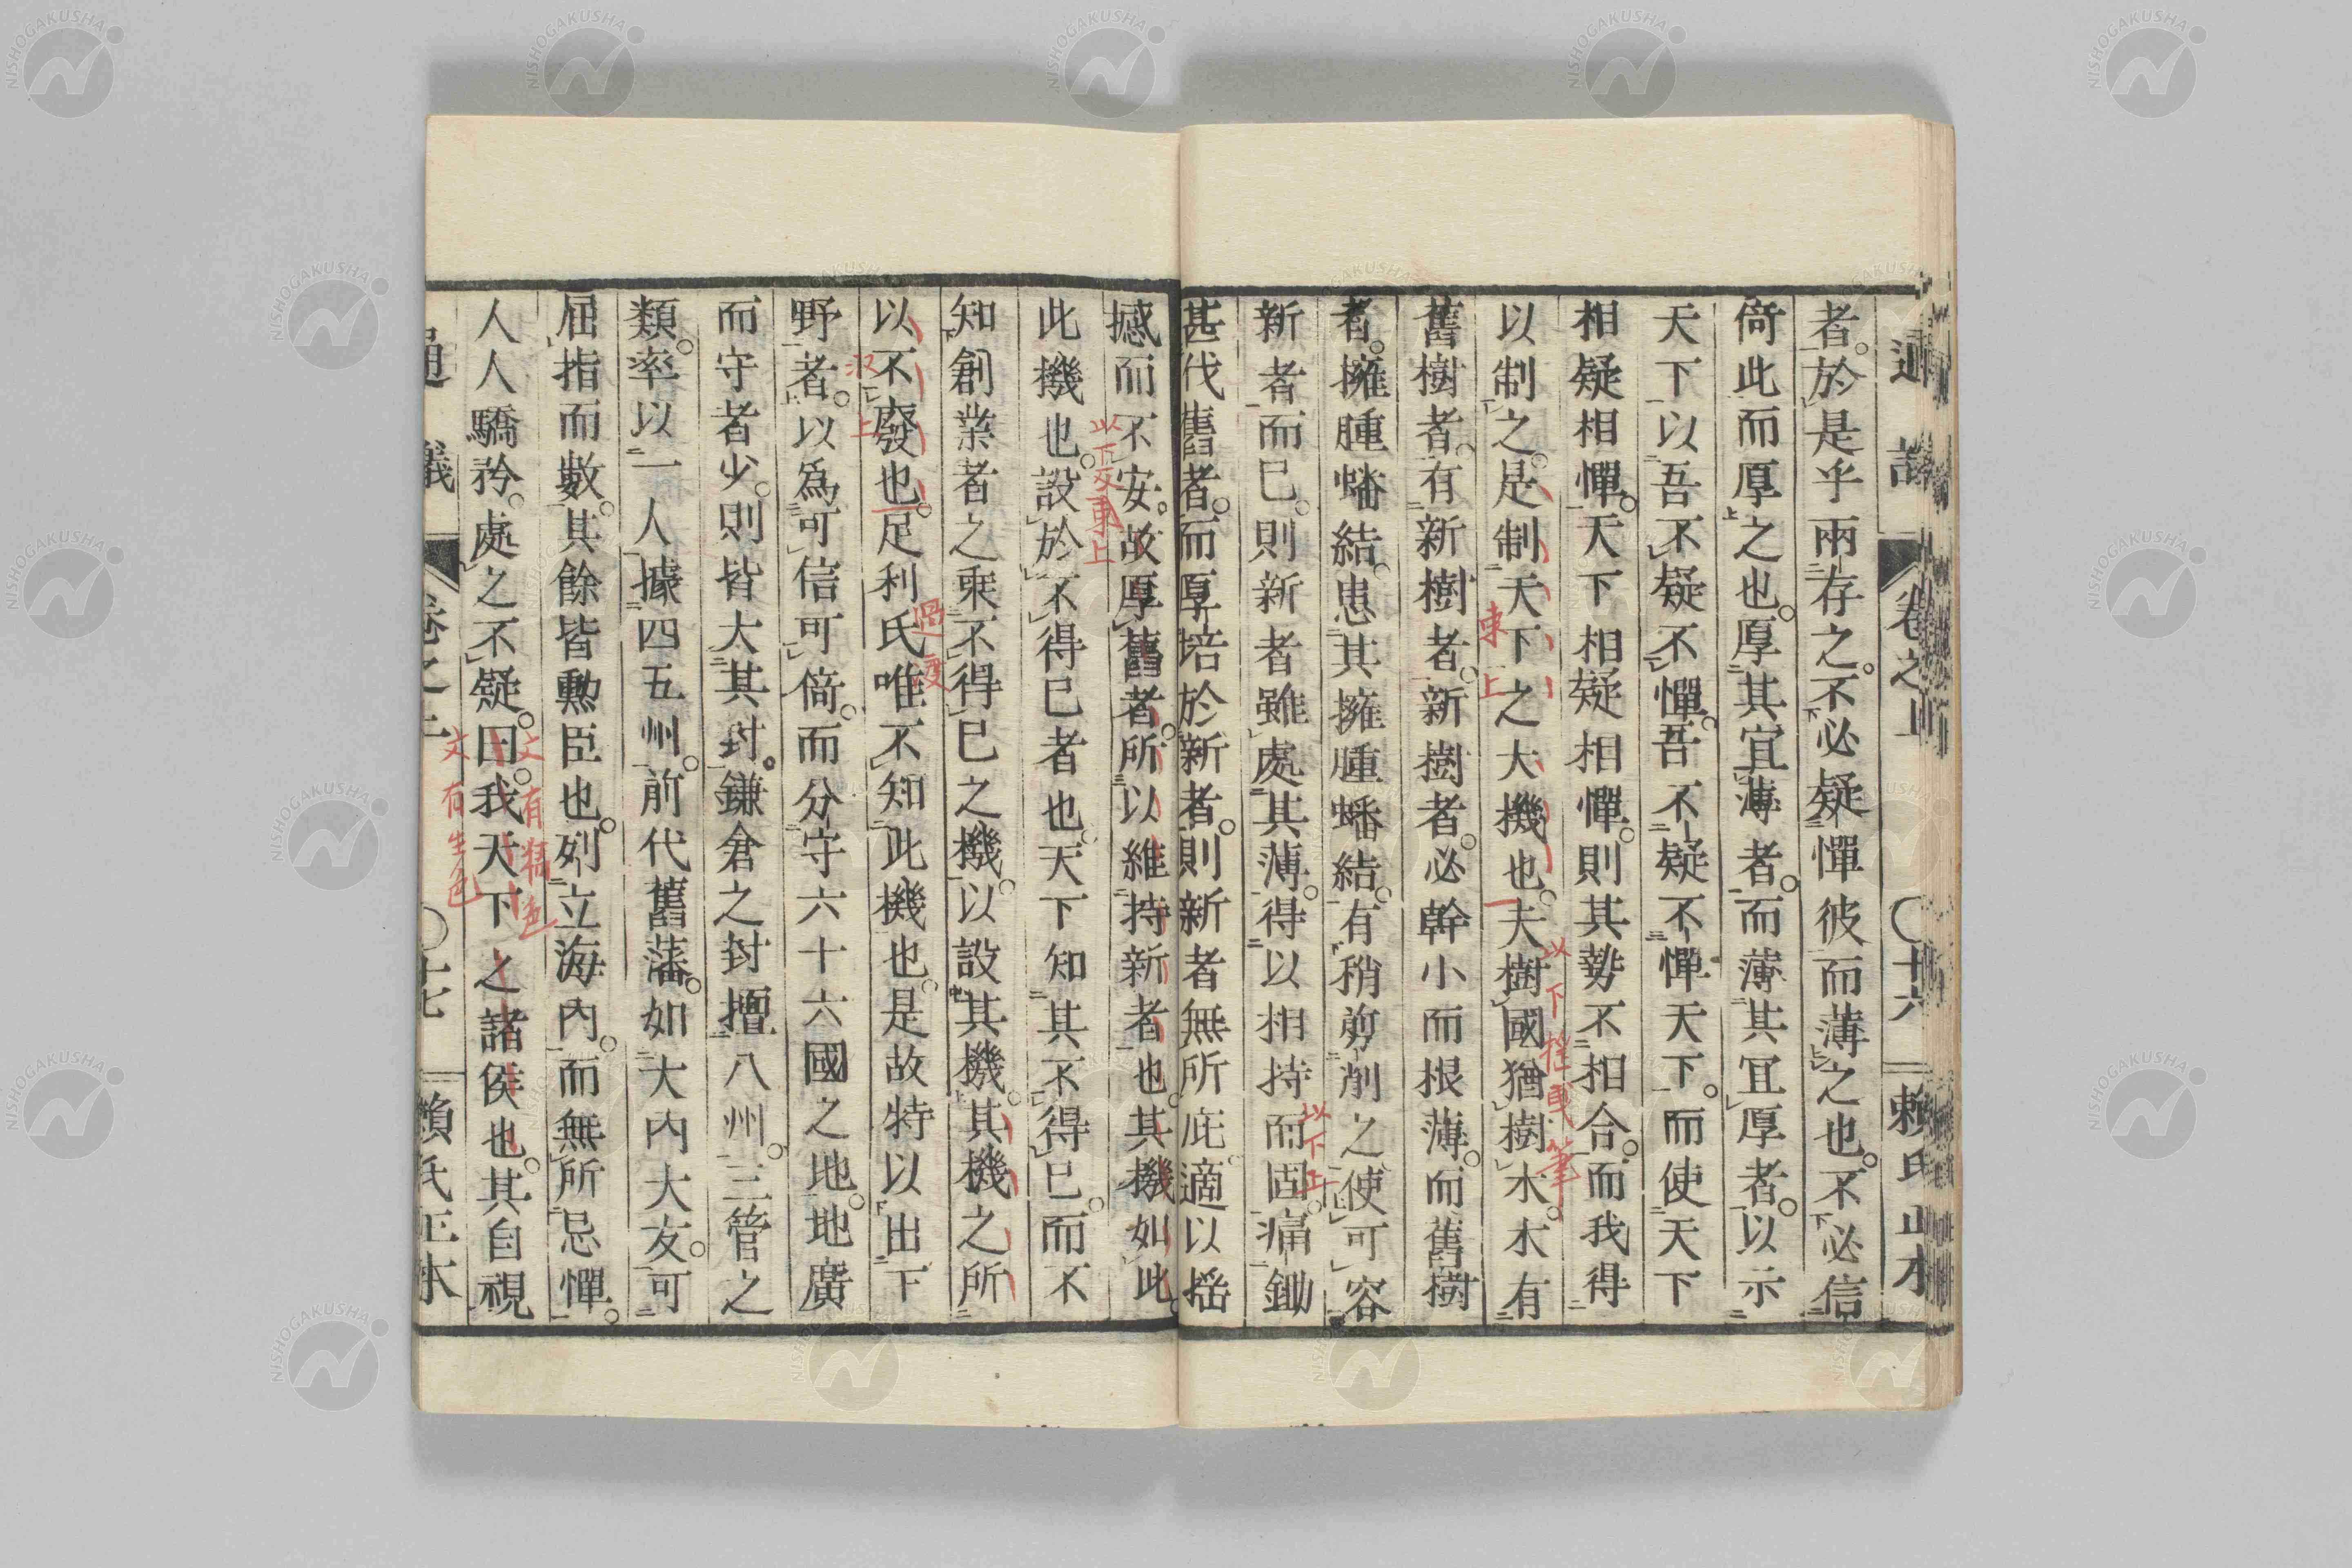 者。於是乎兩存之。不必疑憚彼而薄之也。不必信
倚此而厚之也。厚其宜薄者。而薄其宜厚者。以示
天下以吾不疑不憚。吾不疑不憚天下。而使天下
相疑相憚。天下相疑相憚。則其勢不相合。而我得
以制之。是制天下之大機也。夫樹國猶樹木。木有
舊樹者。有新樹者。新樹者。必幹小而根薄。而舊樹
者。擁腫蟠結。患其擁腫蟠結。有稍剪削之使可容
新者而已。則新者雖處其薄。得以相持而固。痛鋤
甚伐舊者。而厚培於新者。則新者無所庇。適以搖
撼而不安。故厚舊者。所以維持新者也。其機如此。
此機也。設於不得已者也。天下知其不得已。而不
知創業者之乘不得已之機。以設其機。其機之所
以不廢也。足利氏唯不知此機也。是故特以出下
野者。以爲可信可倚。而分守六十六國之地。地廣
而守者少。則皆大其封。鎌倉之封擅八州。三管之
類。率以一人據四五州。前代舊藩。如大内大友。可
屈指而數。其餘皆勲臣也。列立海内。而無所忌憚。
人人驕矜。處之不疑。曰。我天下之諸侯也。其自視
通 議
卷之上
〇十六
頼氏正本
十七
頼氏正本
東上
以下拙曳筆
以下上
以下文東上
過渡
上
文有生色
NISHOGAKUSHA